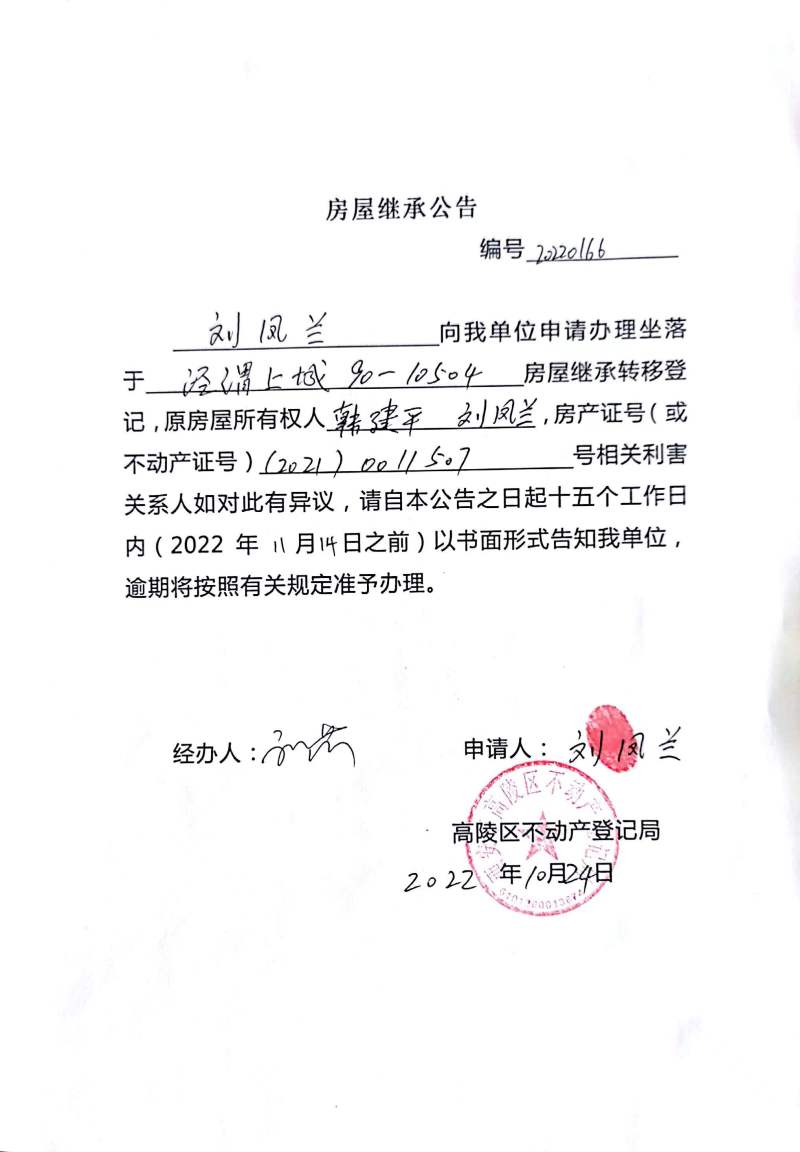 房屋继承公告
编号 20220166
刘凤兰 向我单位申请办理坐落
于 泾渭上城 90-10504 房屋继承转移登
记，原房屋所有权人 韩建平 刘凤兰，房产证号（或
不动产证号）(2021) 0011507 号相关利害
关系人如对此有异议，请自本公告之日起十五个工作日
内（2022 年 11 月14日之前）以书面形式告知我单位，
逾期将按照有关规定准予办理。
经办人： 申请人：刘凤兰
高陵区不动产登记局
2022 年10月24日